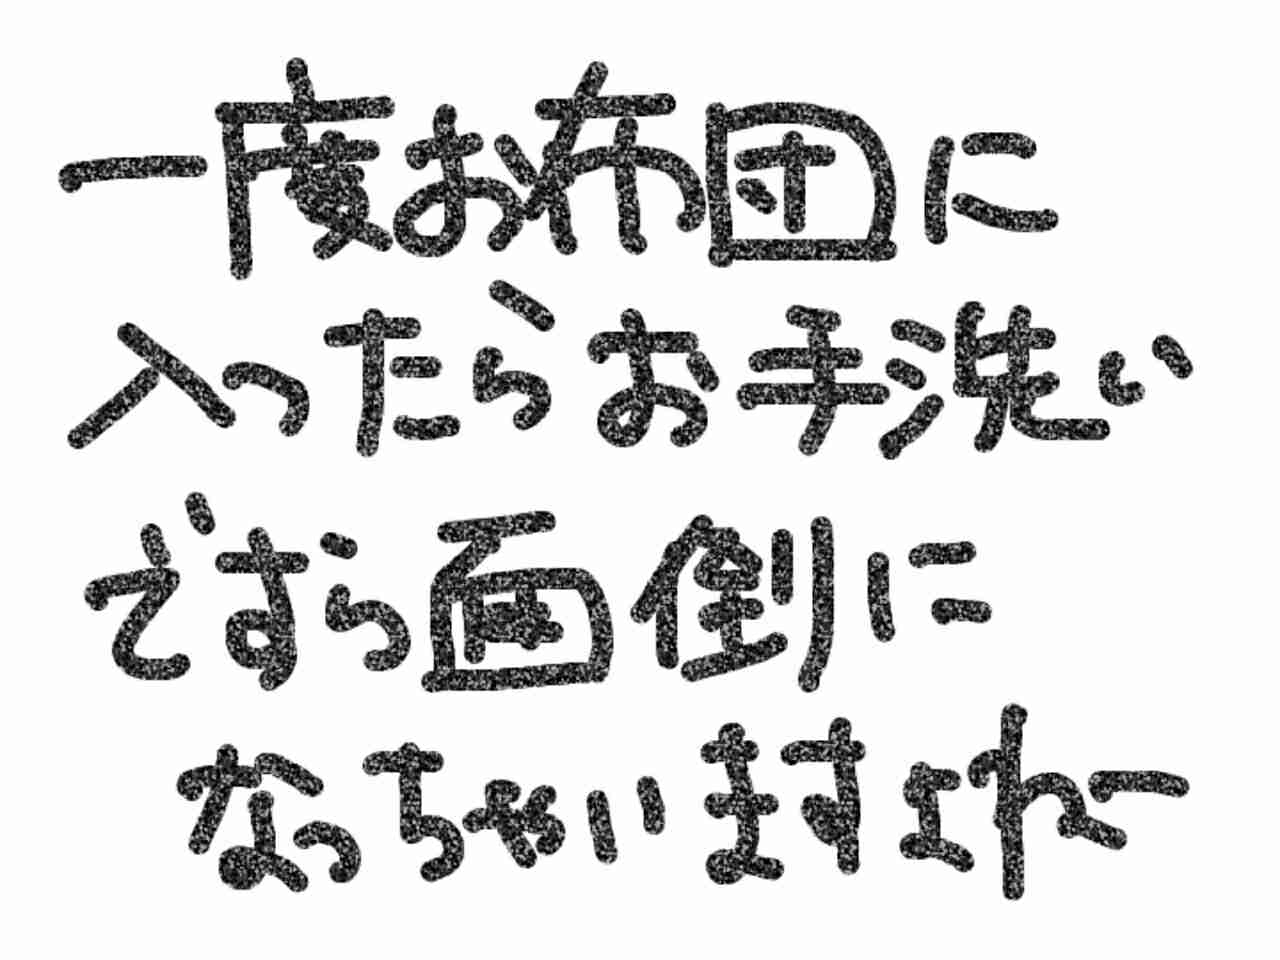 一度お布団に
入ったらお手洗い
ですら面倒に
なっちゃいますよねー